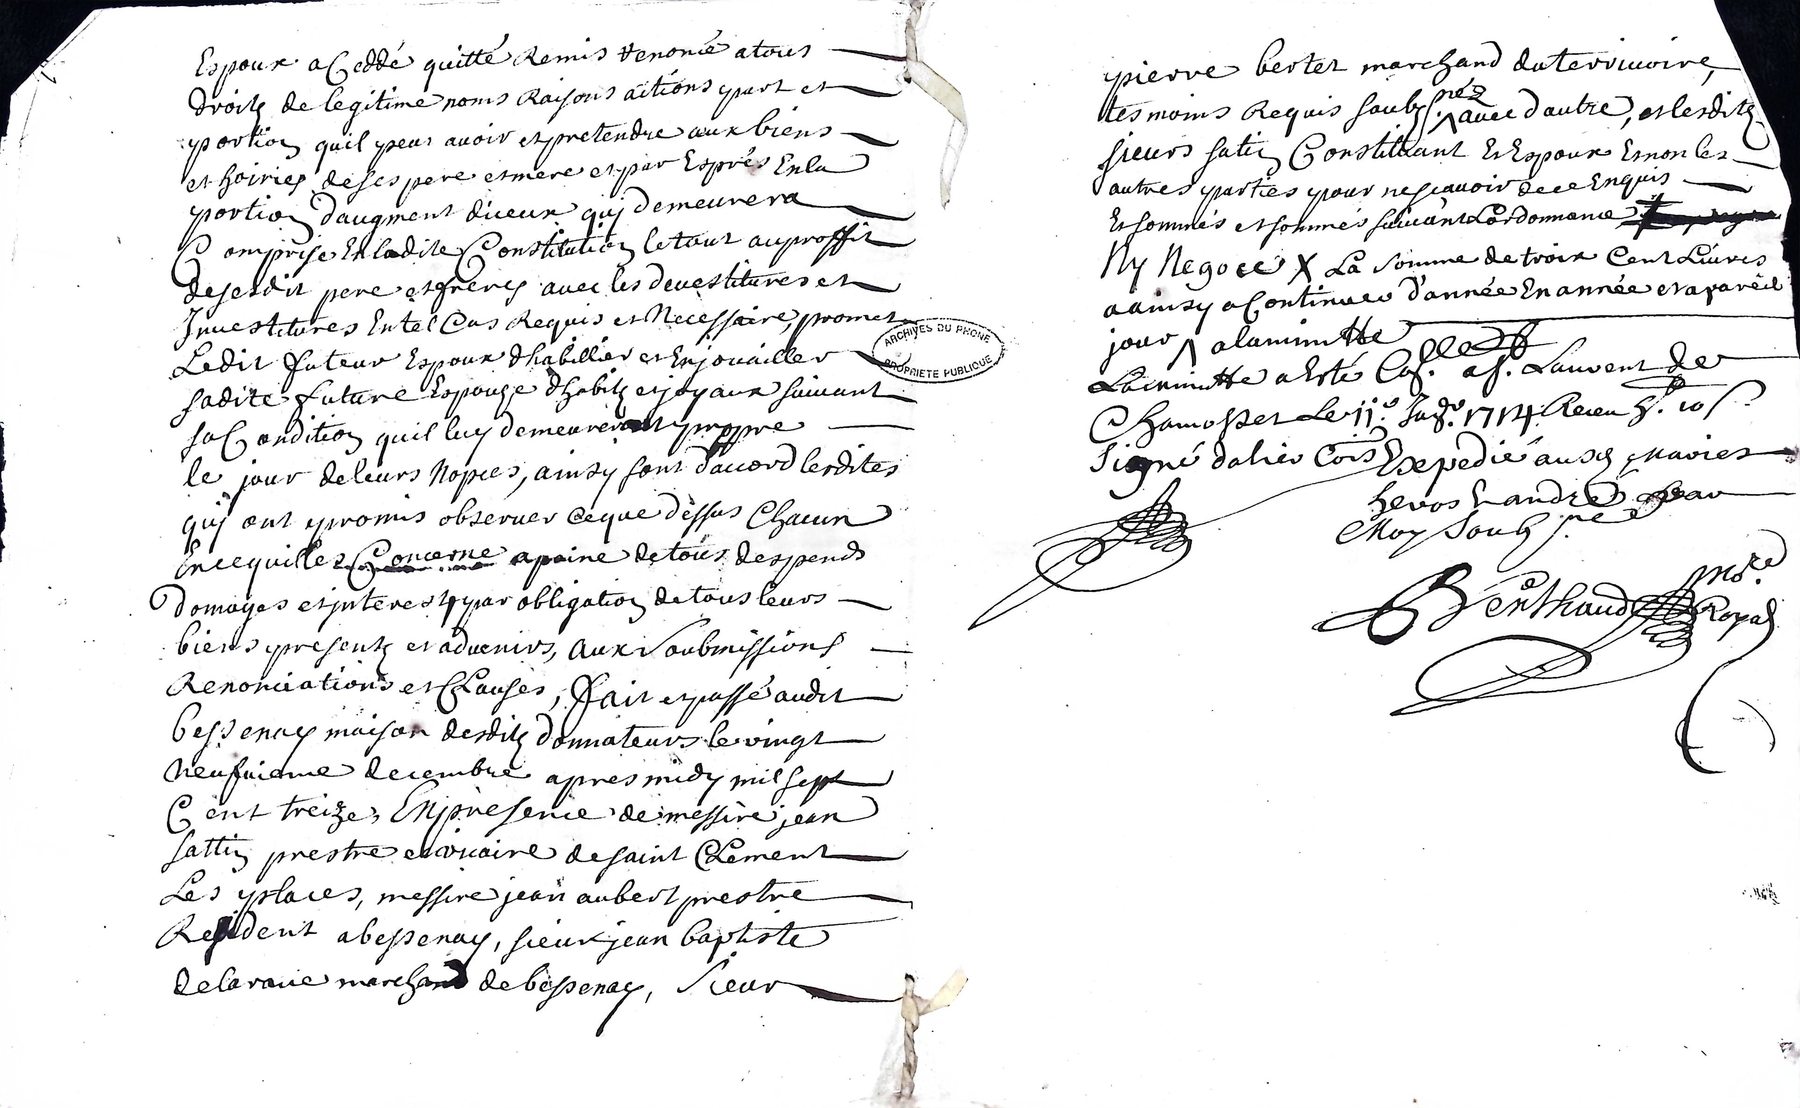 Espoux a Ceddé quitté Remis Renoncé a tous
droits de legitime noms Raisons actions part et
portion quil peut avoir et pretendre aux biens
et hoiries de ses pere et mere et par Esprés En la
portion daugment diceux qui demeurera
Comprise En ladite Constitution le tout au proffit
de sesdit pere et freres avec les devestitures et
Investitures En tel Cas Requis et Necessaire, promet
Ledit futeur Espoux dhabillier et Enjouailler
sadite future Espouze dhabits et joyaux suivant
sa Condition quil luy demeureront propre
le jour de leurs Nopces, ainsy sont daccord lesdites
qui ont promis observer ce que dessus Chacun
En ce qui les Concerne a paine de tous despends
domages et interest par obligation de tous leurs
biens presents et advenirs, aux soubmissions
Renonciations et Clauses, fait et passé audit
bessenay maison desdits donnateurs le vingt
neufvieme decembre apres midy mil sept
Cent treize, En presence de messire jean
sattin prestre et vicaire de saint Clement
Les places, messire jean aubert prestre
Resident a bessenay, sieur jean baptiste
delaraue marchand de bessenay, sieur
ARCHIVES DU RHONE
PROPRIETE PUBLIQUE
pierre berter marchand duterivoire,
tesmoins Requis soubsignéz avec dautre, et lesdits
sieurs satin Constituant Et Espoux Et non les
autres parties pour ne scavoir de ce Enquis
Et sommés et sommés suivant Lordonnance
Ny Negoce X La somme de trois Cent Livres
a ainsy a Continuer d'année En année et a pareil
jour a la minutte
La minutte a Esté Con.lée a St. Laurent de
Chamosset Le 11e Jan. 1714 Receu
Signé dalier Coïs Expedié ausd. mariés
Moy soubsigné
Benthaud No.re
Royal